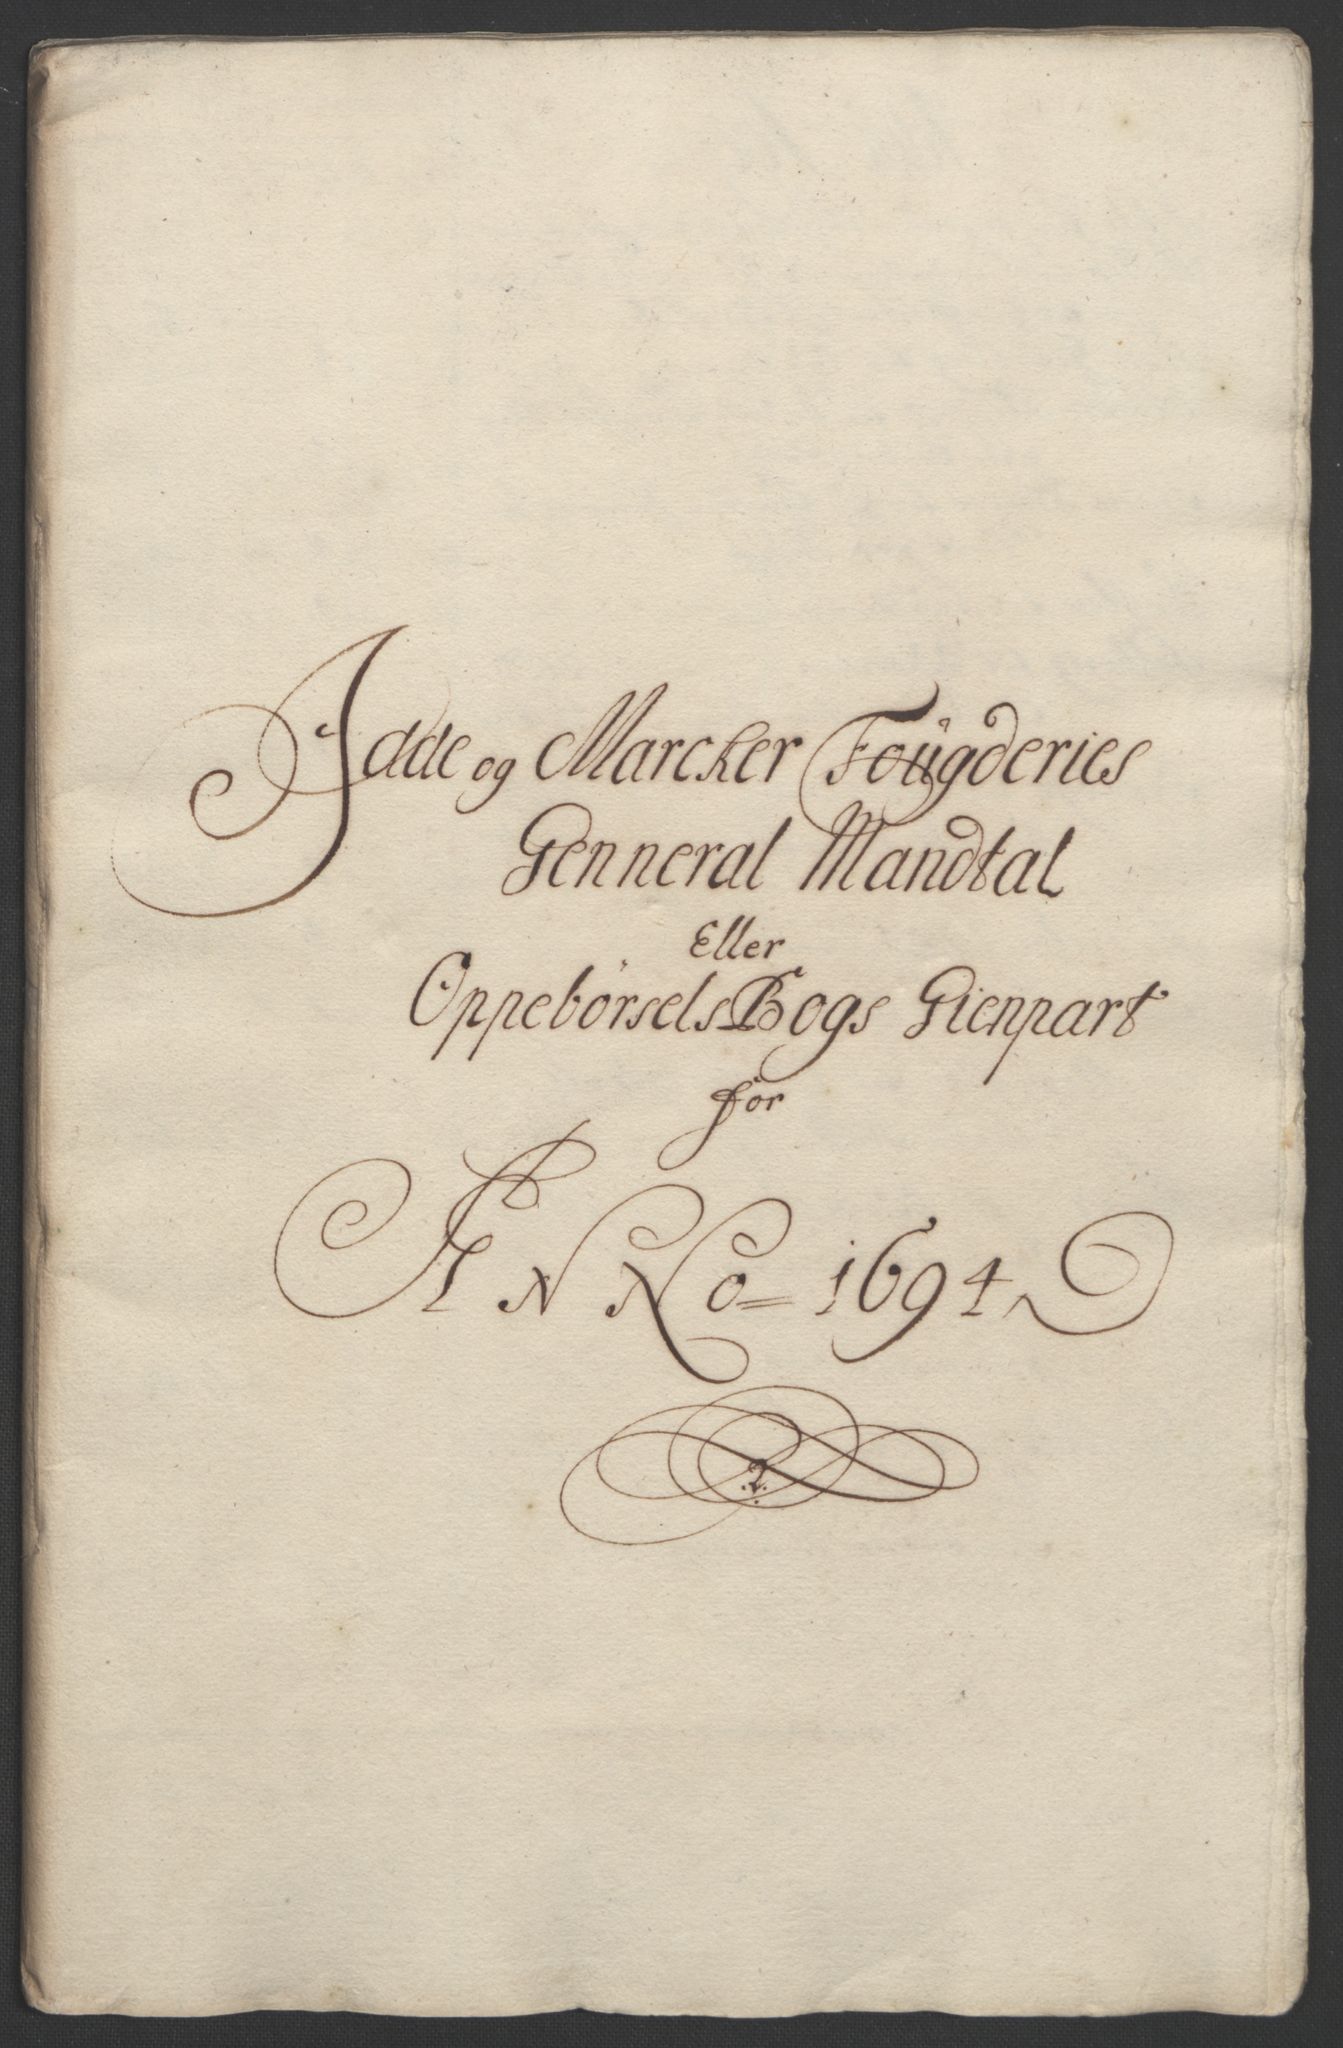 Idde og Marcker Foügderies
Genneral Mandtal
Eller
Oppebørsels Bogs Gienpart
for
ANNo= 1694
.2.